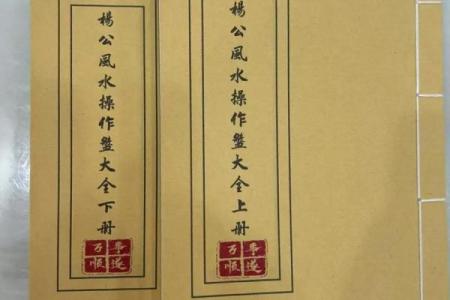 楊公風水操作盤大全上册
万事
順遂
楊公風水操作盤大全下册
万事
順遂